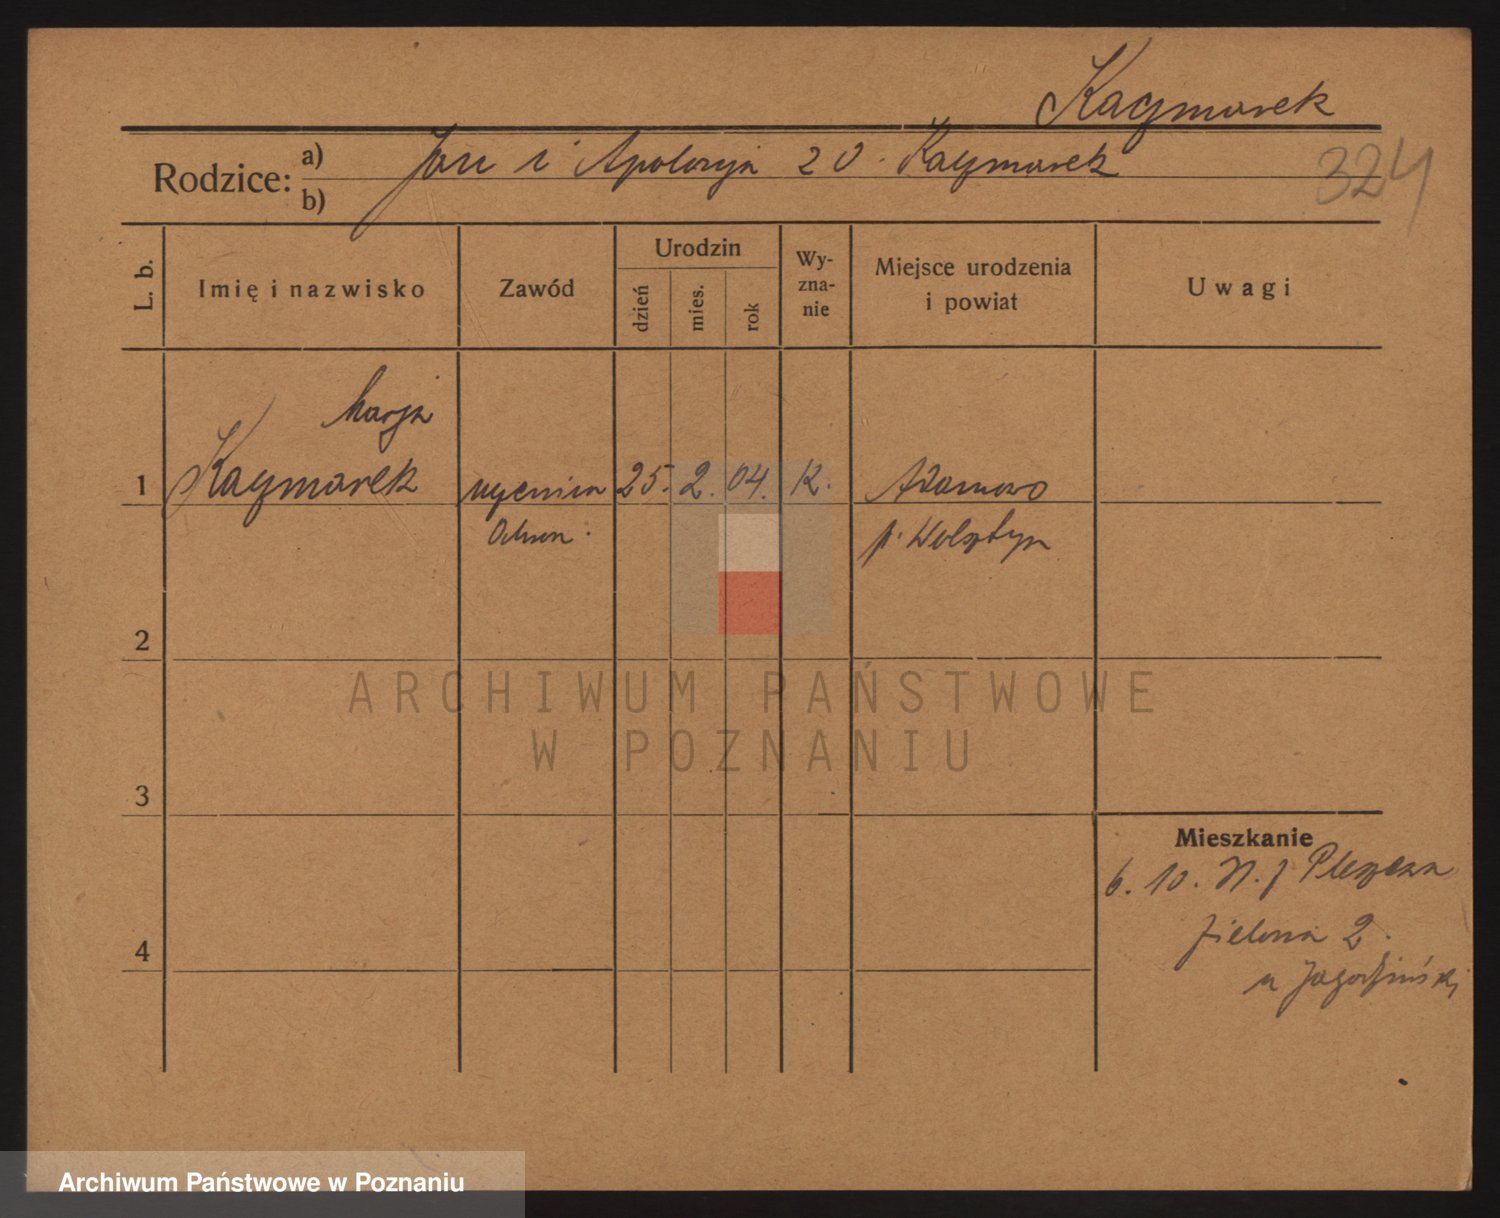 Kaczmarek
324
Rodzice: a) Jan i Apolonja z d. Kaczmarek
b)
L. b.
Imię i nazwisko
Zawód
Urodzin
dzień
mies.
rok
Wy-
zna-
nie
Miejsce urodzenia
i powiat
Uwagi
Marja
1 Kaczmarek uczenica 25. 2. 04. K. Adamowo
Ochron. p. Wolsztyn
2
ARCHIWUM PAŃSTWOWE
W POZNANIU
3
Mieszkanie
6. 10. Pleszewa
4 Zielona 2
u Jagodziński
Archiwum Państwowe w Poznaniu